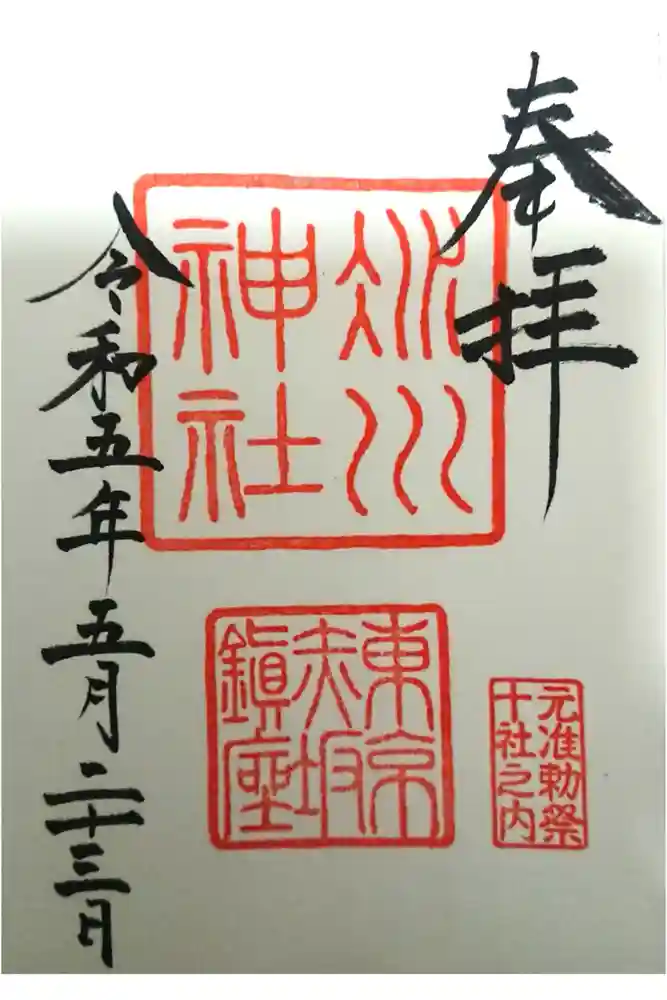 奉拝
氷川
神社
東京
赤坂
鎮座
元准勅祭
十社之内
令和五年五月二十三日